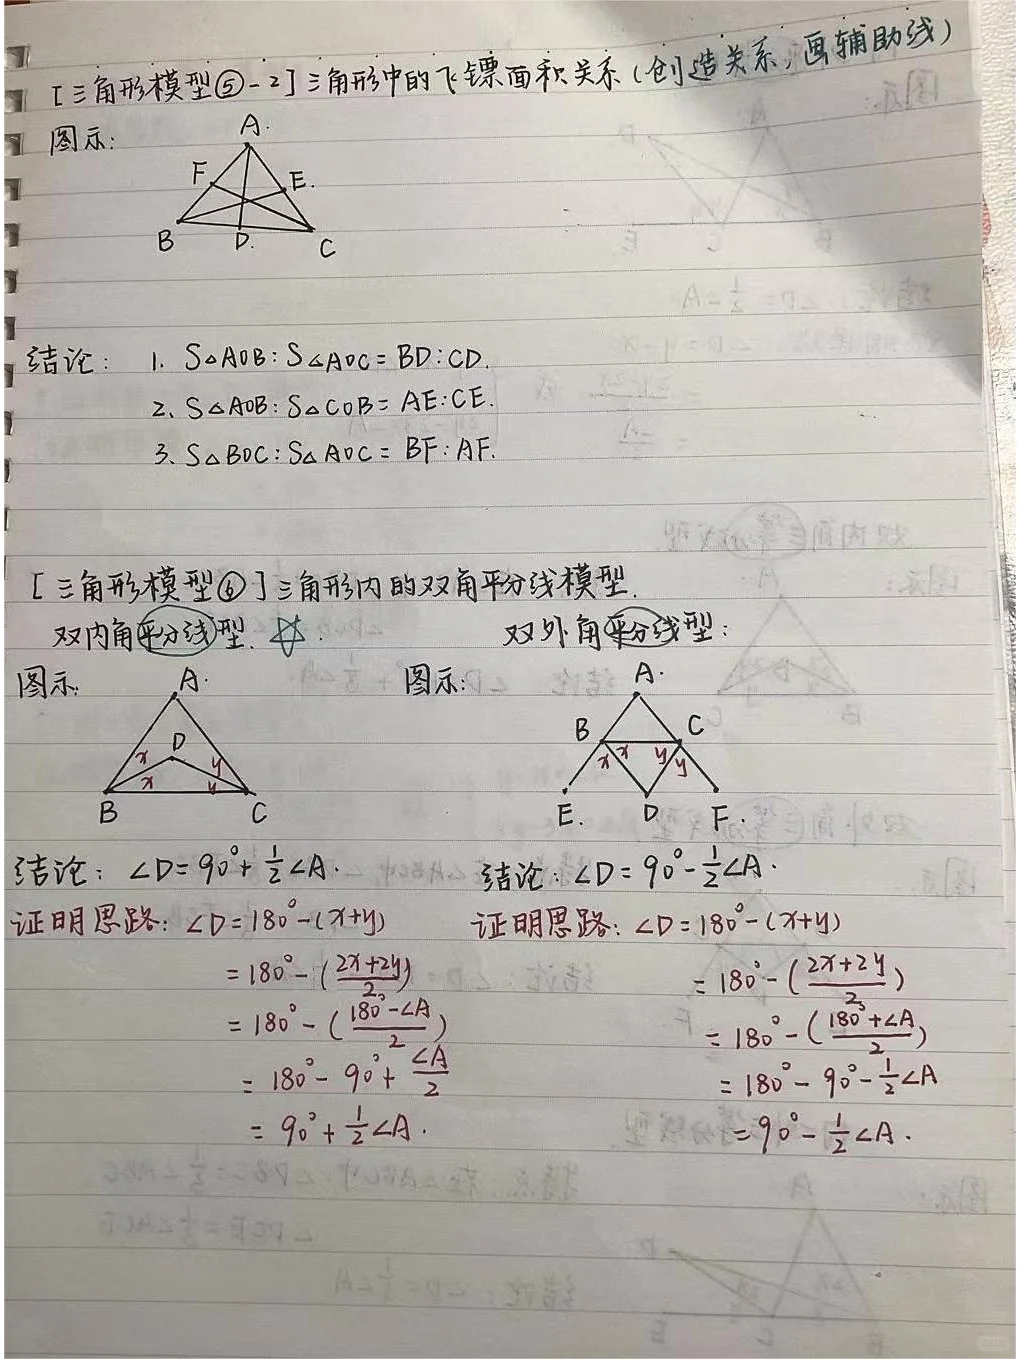 [三角形模型⑤-2]三角形中的飞镖面积关系(创造关系,画辅助线)
图示:
A.
F
E.
B
D.
C
结论: 1. S△AOB:S△AOC=BD:CD.
2. S△AOB:S△COB=AE:CE.
3. S△BOC:S△AOC=BF:AF.
[三角形模型⑥]三角形内的双角平分线模型.
双内角平分线型. ☆:
双外角平分线型:
图示:
A.
D
x
x
y
y
B
C
图示:
A.
B
C
x
x
y
y
E.
D
F.
结论: ∠D=90°+1/2∠A.
证明思路: ∠D=180°-(x+y)
=180°-((2x+2y)/2)
=180°-((180°-∠A)/2)
=180°-90°+∠A/2
=90°+1/2∠A.
结论: ∠D=90°-1/2∠A.
证明思路: ∠D=180°-(x+y)
=180°-((2x+2y)/2)
=180°-((180°+∠A)/2)
=180°-90°-1/2∠A
=90°-1/2∠A.